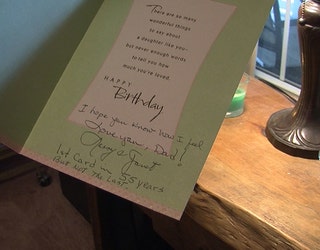 There are so many
wonderful things
to say about
a daughter like you–
but never enough words
to tell you how
much you're loved.
HAPPY
Birthday
I hope you know how I feel
Love you, Dad!
1st Card in 55 years
But Not The Last.